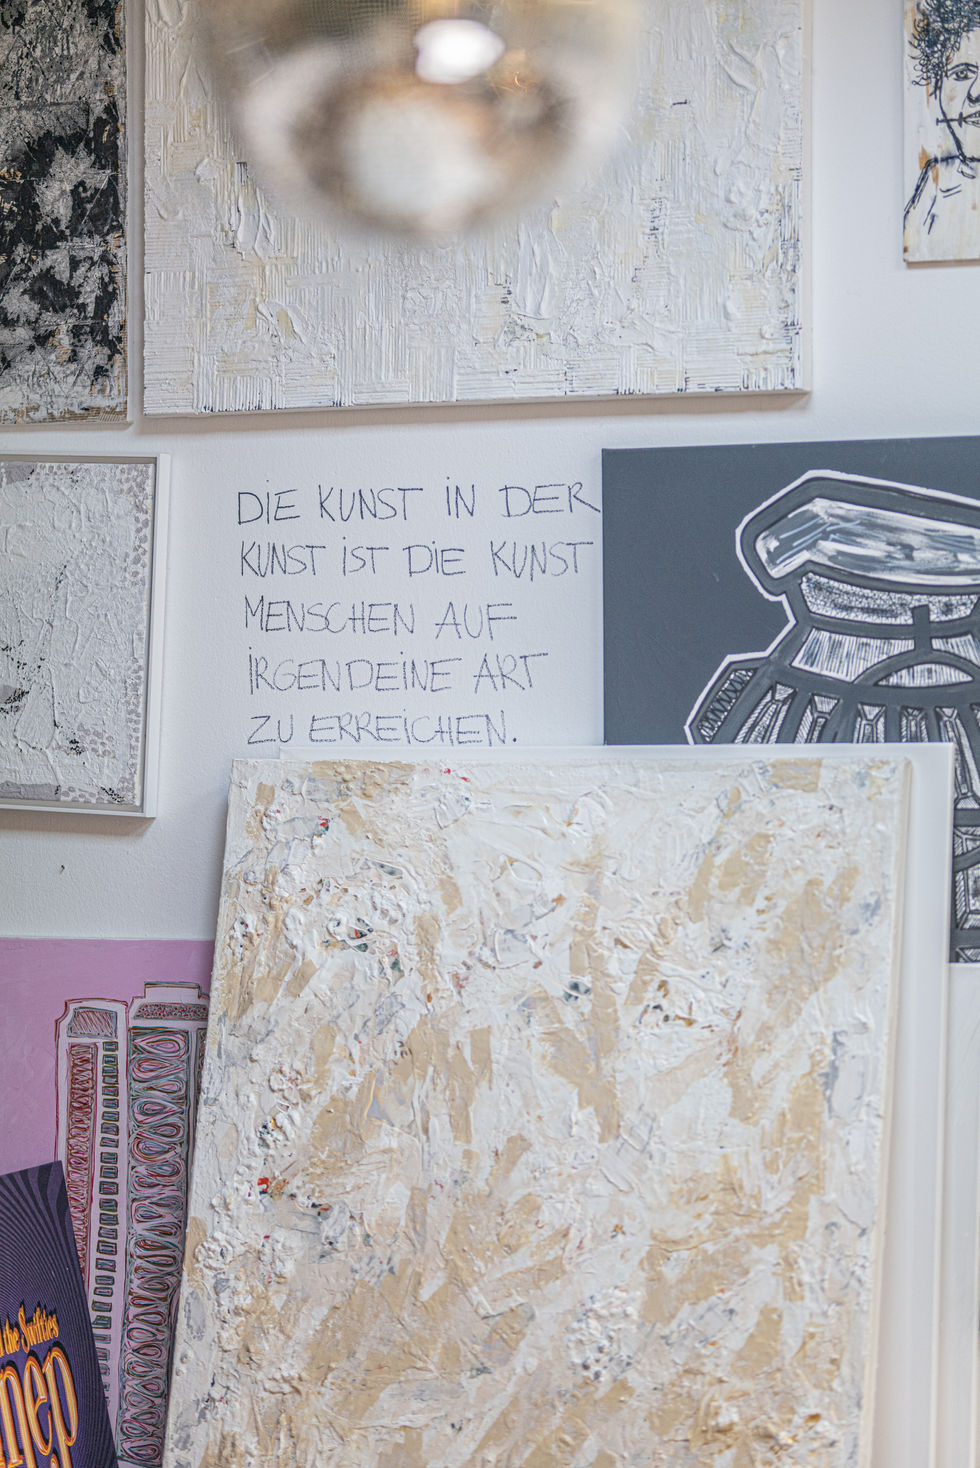 DiE KUNST iN DER
KUNST iST DiE KUNST
MENSCHEN AUF
iRGENDEiNE ART
ZU ERREiCHEN.
the Swifties